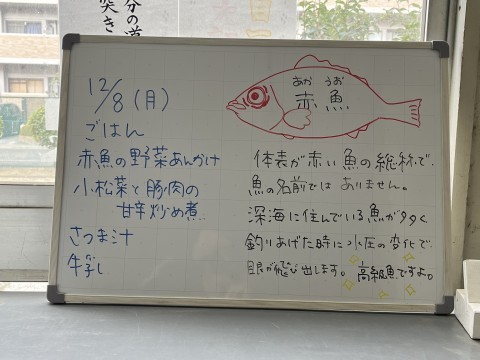 分の道
突き
12/8(月)
ごはん
赤魚の野菜あんかけ
小松菜と豚肉の
甘辛炒め煮
さつま汁
牛乳
あか うお
赤魚
体表が赤い魚の総称で、
魚の名前ではありません。
深海に住んでいる魚が多く、
釣りあげた時に水圧の変化で
眼が飛び出します。高級魚ですよ。